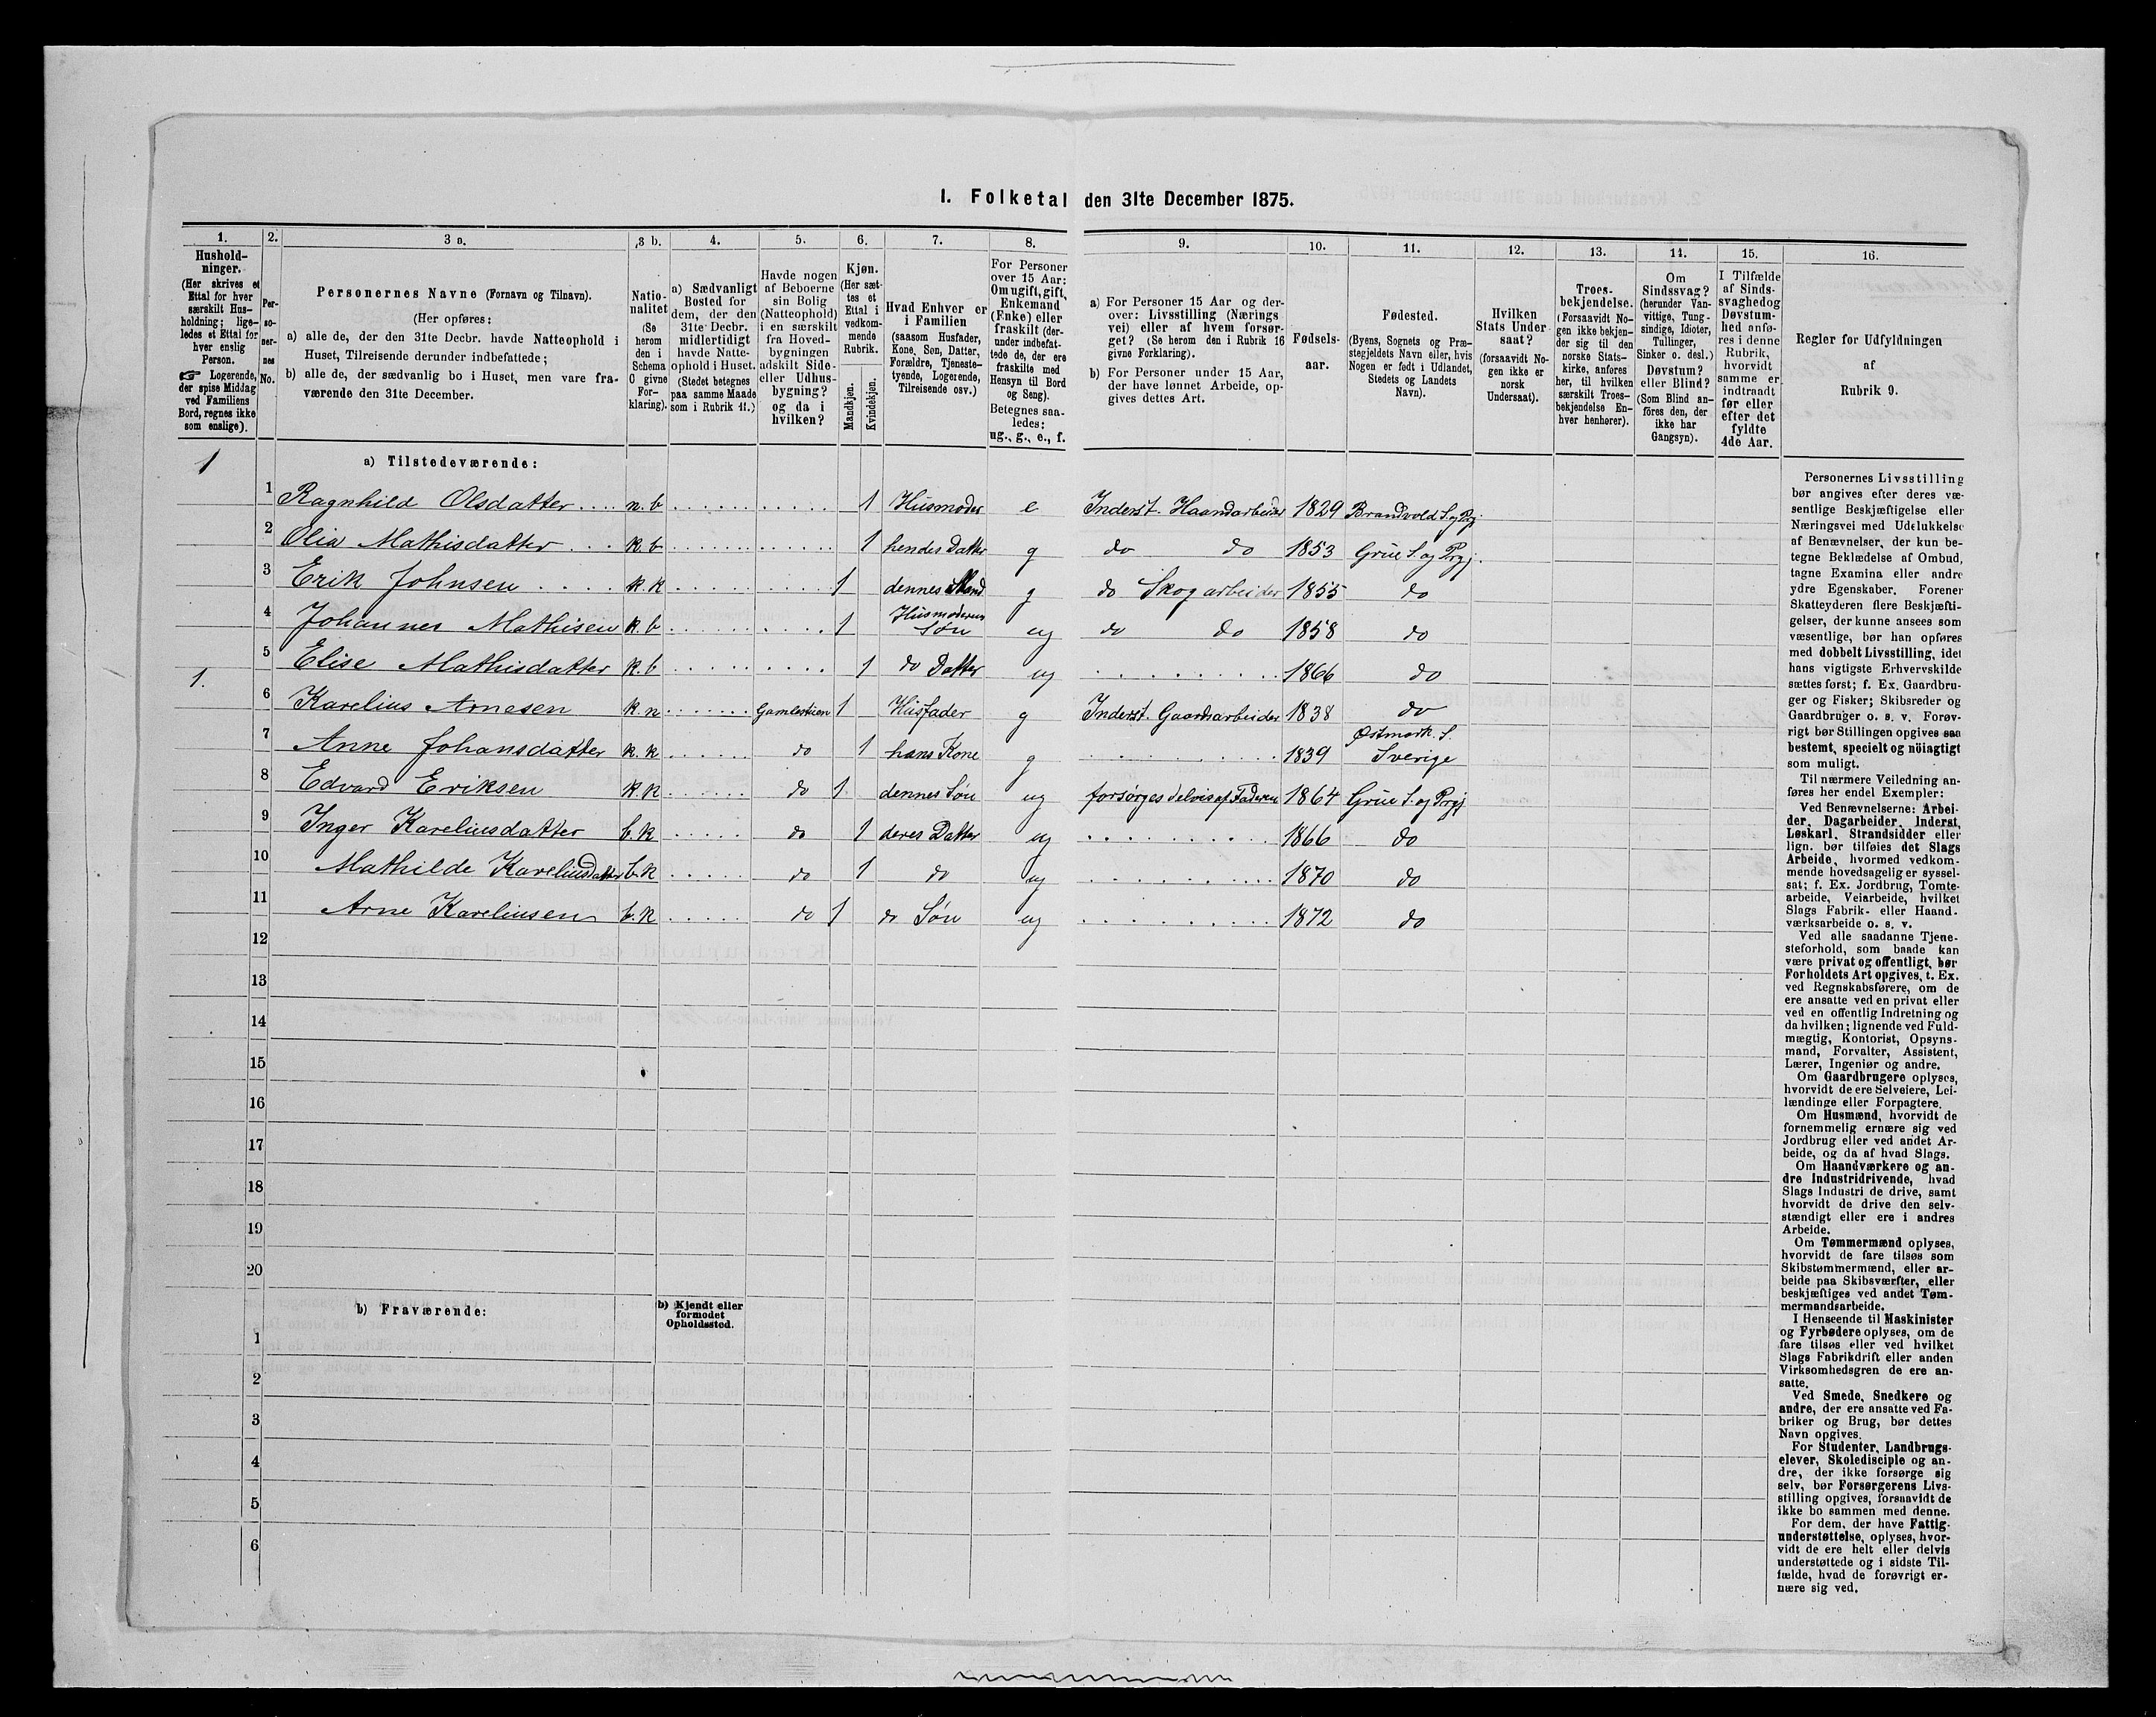 I. Folketal den 31te December 1875.
1.
Hushold-
ninger.
(Her skrives et
Ettal for hver
særskilt Hus-
holdning; lige-
ledes et Ettal for
hver enslig
Person.
☞ Logerende,
der spise Middag
ved Familiens
Bord, regnes ikke
som enslige).
2.
Per-
so-
ner-
nes
No.
3 a.
Personernes Navne (Fornavn og Tilnavn).
(Her opføres:
a) alle de, der den 31te Decbr. havde Natteophold i
Huset, Tilreisende derunder indbefattede;
b) alle de, der sædvanlig bo i Huset, men vare fra-
værende den 31te December.
3 b.
Natio-
nalitet
(Se
herom
den i
Schema
O givne
For-
klaring).
4.
a) Sædvanligt
Bosted for
dem, der den
31te Decbr.
midlertidigt
havde Natte-
ophold i Huset.
(Stedet betegnes
paa samme Maade
som i Rubrik 11.)
5.
Havde nogen
af Beboerne
sin Bolig
(Natteophold)
i en særskilt
fra Hoved-
bygningen
adskilt Side-
eller Udhus-
bygning?
og da i
hvilken?
6.
Kjøn.
(Her sæt-
tes et
Ettal i
vedkom-
mende
Rubrik.
Mandkjøn.
Kvindekjøn.
7.
Hvad Enhver er
i Familien
(saasom Husfader,
Kone, Søn, Datter,
Forældre, Tjeneste-
tyende, Logerende,
Tilreisende osv.)
8.
For Personer
over 15 Aar:
Om ugift, gift,
Enkemand
(Enke) eller
fraskilt (der-
under indbefat-
tede de, der ere
fraskilte med
Hensyn til Bord
og Seng).
Betegnes saa-
ledes:
ug., g., e., f.
9.
a) For Personer 15 Aar og der-
over: Livsstilling (Nærings
vei) eller af hvem forsør-
get? (Se herom den i Rubrik 16
givne Forklaring).
b) For Personer under 15 Aar,
der have lønnet Arbeide, op-
gives dettes Art.
10.
Fødsels-
aar.
11.
Fødested.
(Byens, Sognets og Præ-
stegjeldets Navn eller, hvis
Nogen er født i Udlandet,
Stedets og Landets
Navn).
12.
Hvilken
Stats Under
saat?
(forsaavidt No-
gen ikke er
norsk
Undersaat).
13.
Troes-
bekjendelse.
(Forsaavidt No-
gen ikke bekjen-
der sig til den
norske Stats-
kirke, anføres
her, til hvilken
særskilt Troes-
bekjendelse En-
hver henhører).
14.
Om
Sindssvag?
(herunder Van-
vittige, Tung-
sindige, Idioter,
Tullinger,
Sinker o. desl.)
Døvstum?
eller Blind?
(Som Blind an-
föres den, der
ikke har
Gangsyn).
15.
I Tilfælde
af Sinds-
svaghed og
Døvstum-
hed anfø-
res i denne
Rubrik,
hvorvidt
samme er
indtraadt
før eller
efter det
fyldte
4de Aar.
16.
Regler for Udfyldningen
af
Rubrik 9.
1
a) Tilstedeværende:
1 Ragnhild Olsdatter n.b 1 Husmoder e Inderst. Haandarbeider 1829 Brandvold S. og Prgj.
2 Olia Mathisdatter k.b 1 hendes Datter g do do 1853 Grue S. og Prgj.
3 Erik Johnsen k.k 1 dennes Mand g do Skogarbeider 1855 do
4 Johannes Mathisen k.b 1 Husmoderens Søn ug do do 1858 do
5 Elise Mathisdatter k.b 1 do Datter ug 1866 do
1. 6 Karelius Arnesen k.n 1 Husfader g Inderst. Gaardsarbeider 1838 do
7 Anne Johansdatter k.k do 1 hans Kone g 1839 Østmark S. Sverige
8 Edvard Eriksen k.k do 1 dennes Søn ug forsørges delvis af Faderen 1864 Grue S. og Prgj
9 Inger Kareliusdatter b.k do 1 deres Datter ug 1866 do
10 Mathilde Kareliusdatter b.k do 1 do ug 1870 do
11 Arne Kareliusen b.k do 1 do Søn ug 1872 do
12
13
14
15
16
17
18
19
20
b) Fraværende:
b) Kjendt eller
formodet
Opholdssted.
1
2
3
4
5
6
Personernes Livsstilling
bør angives efter deres væ-
sentlige Beskjæftigelse eller
Næringsvei med Udelukkelse
af Benævnelser, der kun be-
tegne Beklædelse af Ombud,
tagne Examina eller andre
ydre Egenskaber. Forener
Skatteyderen flere Beskjæfti-
gelser, der kunne ansees som
væsentlige, bør han opføres
med dobbelt Livsstilling, idet
hans vigtigste Erhvervskilde
sættes først; f. Ex. Gaardbru-
ger og Fisker; Skibsreder og
Gaardbruger o. s. v. Forøv-
rigt bør Stillingen opgives saa
bestemt, specielt og nöiagtigt
som muligt.
Til nærmere Veiledning an-
føres her endel Exempler:
Ved Benævnelserne: Arbei-
der, Dagarbeider, Inderst,
Løskarl, Strandsidder eller
lign. bør tilføies det Slags
Arbeide, hvormed vedkom-
mende hovedsagelig er syssel-
sat; f. Ex. Jordbrug, Tomte-
arbeide, Veiarbeide, hvilket
Slags Fabrik- eller Haand-
værksarbeide o. s. v.
Ved alle saadanne Tjene-
steforhold, som baade kan
være privat og offentligt, bør
Forholdets Art opgives, t. Ex.
ved Regnskabsførere, om de
ere ansatte ved en privat eller
ved en offentlig Indretning og
da hvilken; lignende ved Fuld-
mægtig, Kontorist, Opsyns-
mand, Forvalter, Assistent,
Lærer, Ingeniør og andre.
Om Gaardbrugere oplyses,
hvorvidt de ere Selveiere, Lei-
lændinge eller Forpagtere.
Om Husmænd, hvorvidt de
fornemmelig ernære sig ved
Jordbrug eller ved andet Ar-
beide, og da af hvad Slags.
Om Haandværkere og an-
dre Industridrivende, hvad
Slags Industri de drive, samt
hvorvidt de drive den selv-
stændigt eller ere i andres
Arbeide.
Om Tømmermænd oplyses,
hvorvidt de fare tilsøs som
Skibstømmermænd, eller ar-
beide paa Skibsværfter, eller
beskjæftiges ved andet Tøm-
mermandsarbeide.
I Henseende til Maskinister
og Fyrbødere oplyses, om de
fare tilsøs eller ved hvilket
Slags Fabrikdrift eller anden
Virksomhedsgren de ere an-
satte.
Ved Smede, Snedkere og
andre, der ere ansatte ved Fa-
briker og Brug, bør dettes
Navn opgives.
For Studenter, Landbrugs-
elever, Skoledisciple og an-
dre, der ikke forsørge sig
selv, bør Forsørgerens Livs-
stilling opgives, forsaavidt de
ikke bo sammen med denne.
For dem, der have Fattig-
understøttelse, oplyses, hvor-
vidt de ere helt eller delvis
understøttede og i sidste Til-
fælde, hvad de forøvrigt er-
nære sig ved.